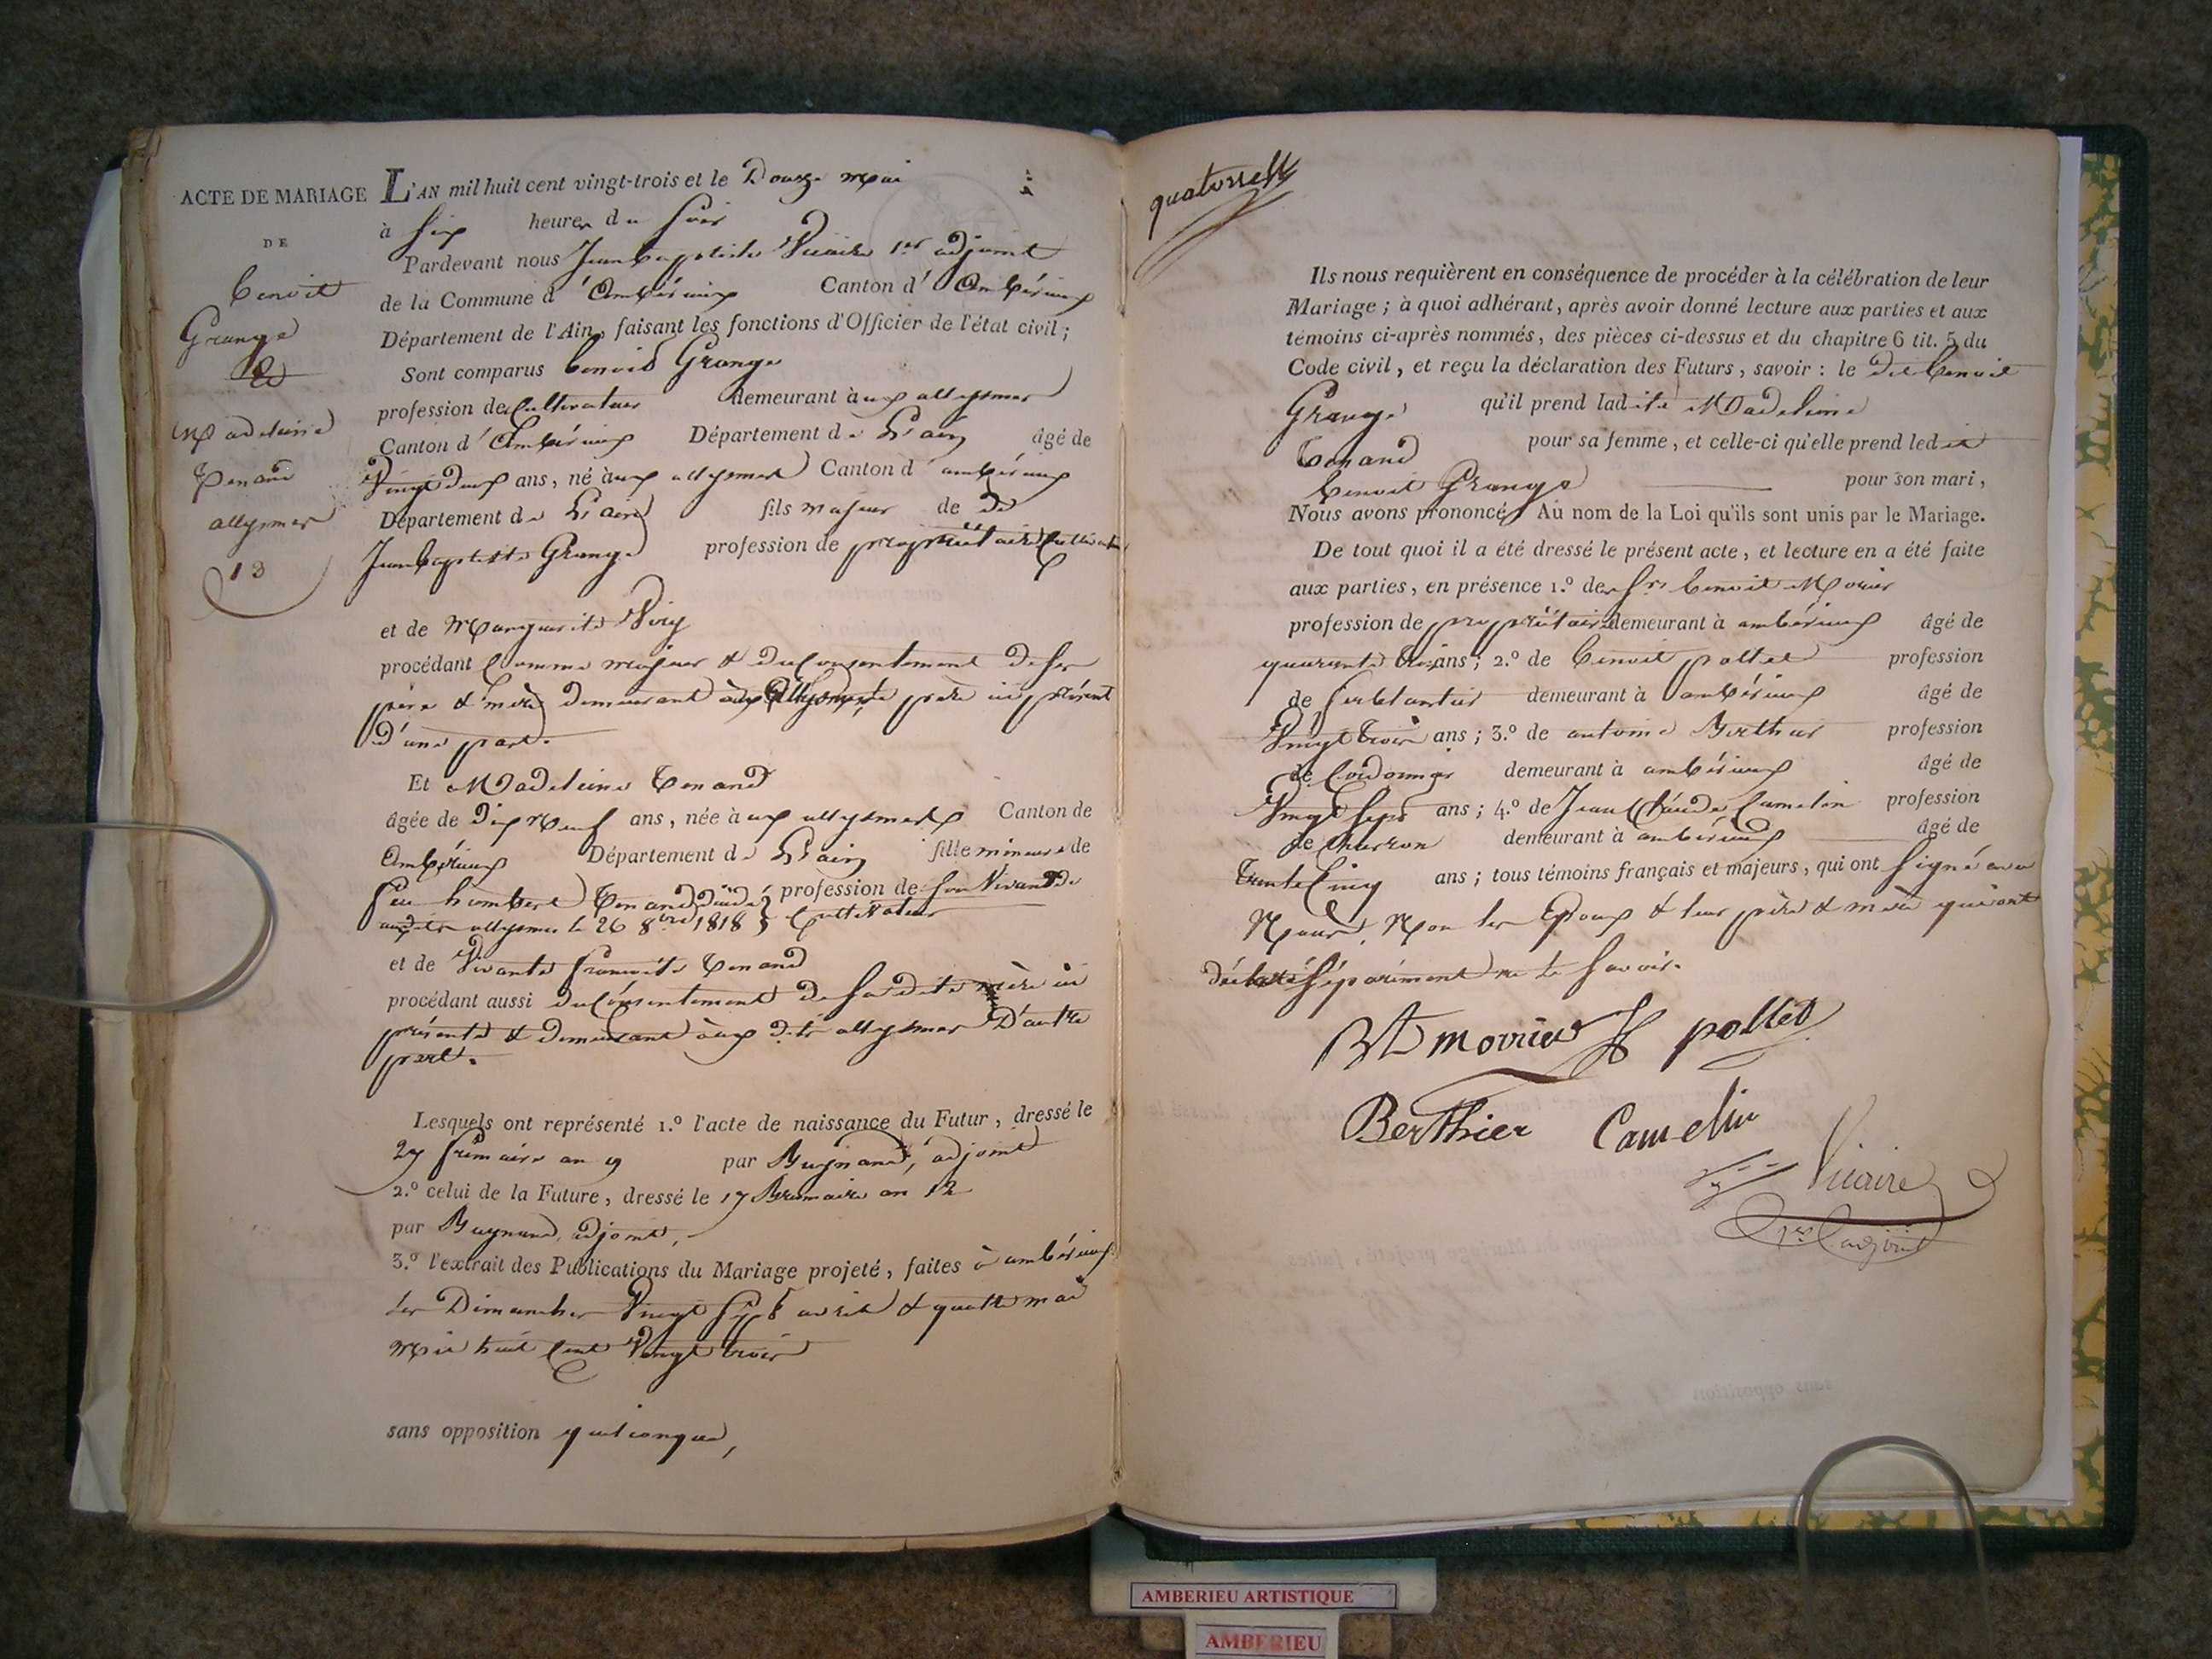 ACTE DE MARIAGE
DE
benoit
Grange
&
Madeleine
Tenand
allymes
13
L'AN mil huit cent vingt-trois et le Douze mai
à six heures du soir
Pardevant nous Jean baptiste Vicaire 1er adjoint
de la Commune d'Ambérieux Canton d'Ambérieux
Département de l'Ain, faisant les fonctions d'Officier de l'état civil;
Sont comparus benoit Grange
profession de Cultivateur demeurant aux allymes
Canton d'Ambérieux Département de L'ain âgé de
Vingt deux ans, né aux allymes Canton d'ambérieux
Département de L'ain fils majeur de
Jean baptiste Grange profession de propriétaire Cultivateur
et de Marguerite Viry
procédant Comme majeur & du Consentement de ses
père & mère demeurant aux allymes, le père ici présent
D'une part.
Et Madeleine Tenand
âgée de Dix Neuf ans, née aux allymes Canton de
Ambérieux Département de L'ain fille mineure de
feu humbert Tenand décédé profession de son Vivant de
aux dits allymes le 26 8bre 1818 Cultivateur
et de Vivante françoise Tenand
procédant aussi du Consentement de sa dite mère ici
présente & demeurant aux dits allymes D'autre
part.
Lesquels ont représenté 1.º l'acte de naissance du Futur, dressé le
27 frimaire an 9 par Bugnand, adjoint
2.º celui de la Future, dressé le 17 Brumaire an 12
par Bugnand, adjoint,
3.º l'extrait des Publications du Mariage projeté, faites à ambérieux
les Dimanches Vingt sept avril & quatre mai
Mil huit Cent Vingt trois
sans opposition quelconque,
quatorze
Ils nous requièrent en conséquence de procéder à la célébration de leur
Mariage; à quoi adhérant, après avoir donné lecture aux parties et aux
témoins ci-après nommés, des pièces ci-dessus et du chapitre 6 tit. 5 du
Code civil, et reçu la déclaration des Futurs, savoir: le dit benoit
Grange qu'il prend ladite Madeleine
Tenand pour sa femme, et celle-ci qu'elle prend ledit
benoit Grange pour son mari,
Nous avons prononcé Au nom de la Loi qu'ils sont unis par le Mariage.
De tout quoi il a été dressé le présent acte, et lecture en a été faite
aux parties, en présence 1.º de Srs benoit Morier
profession de propriétaire demeurant à ambérieux âgé de
quarante trois ans; 2.º de benoit pollet profession
de ferblantier demeurant à ambérieux âgé de
Vingt trois ans; 3.º de antoine Berthier profession
de Cordonnier demeurant à ambérieux âgé de
Vingt Sept ans; 4.º de Jean Claude Camelin profession
de charron demeurant à ambérieux âgé de
trente Cinq ans; tous témoins français et majeurs, qui ont signé avec
Nous, Non les Epoux & leur père & mère qui ont
déclaré séparément ne le savoir.
Bt morrier pollet
Berthier Camelin
Vicaire
1er adjoint
AMBERIEU ARTISTIQUE
AMBERIEU